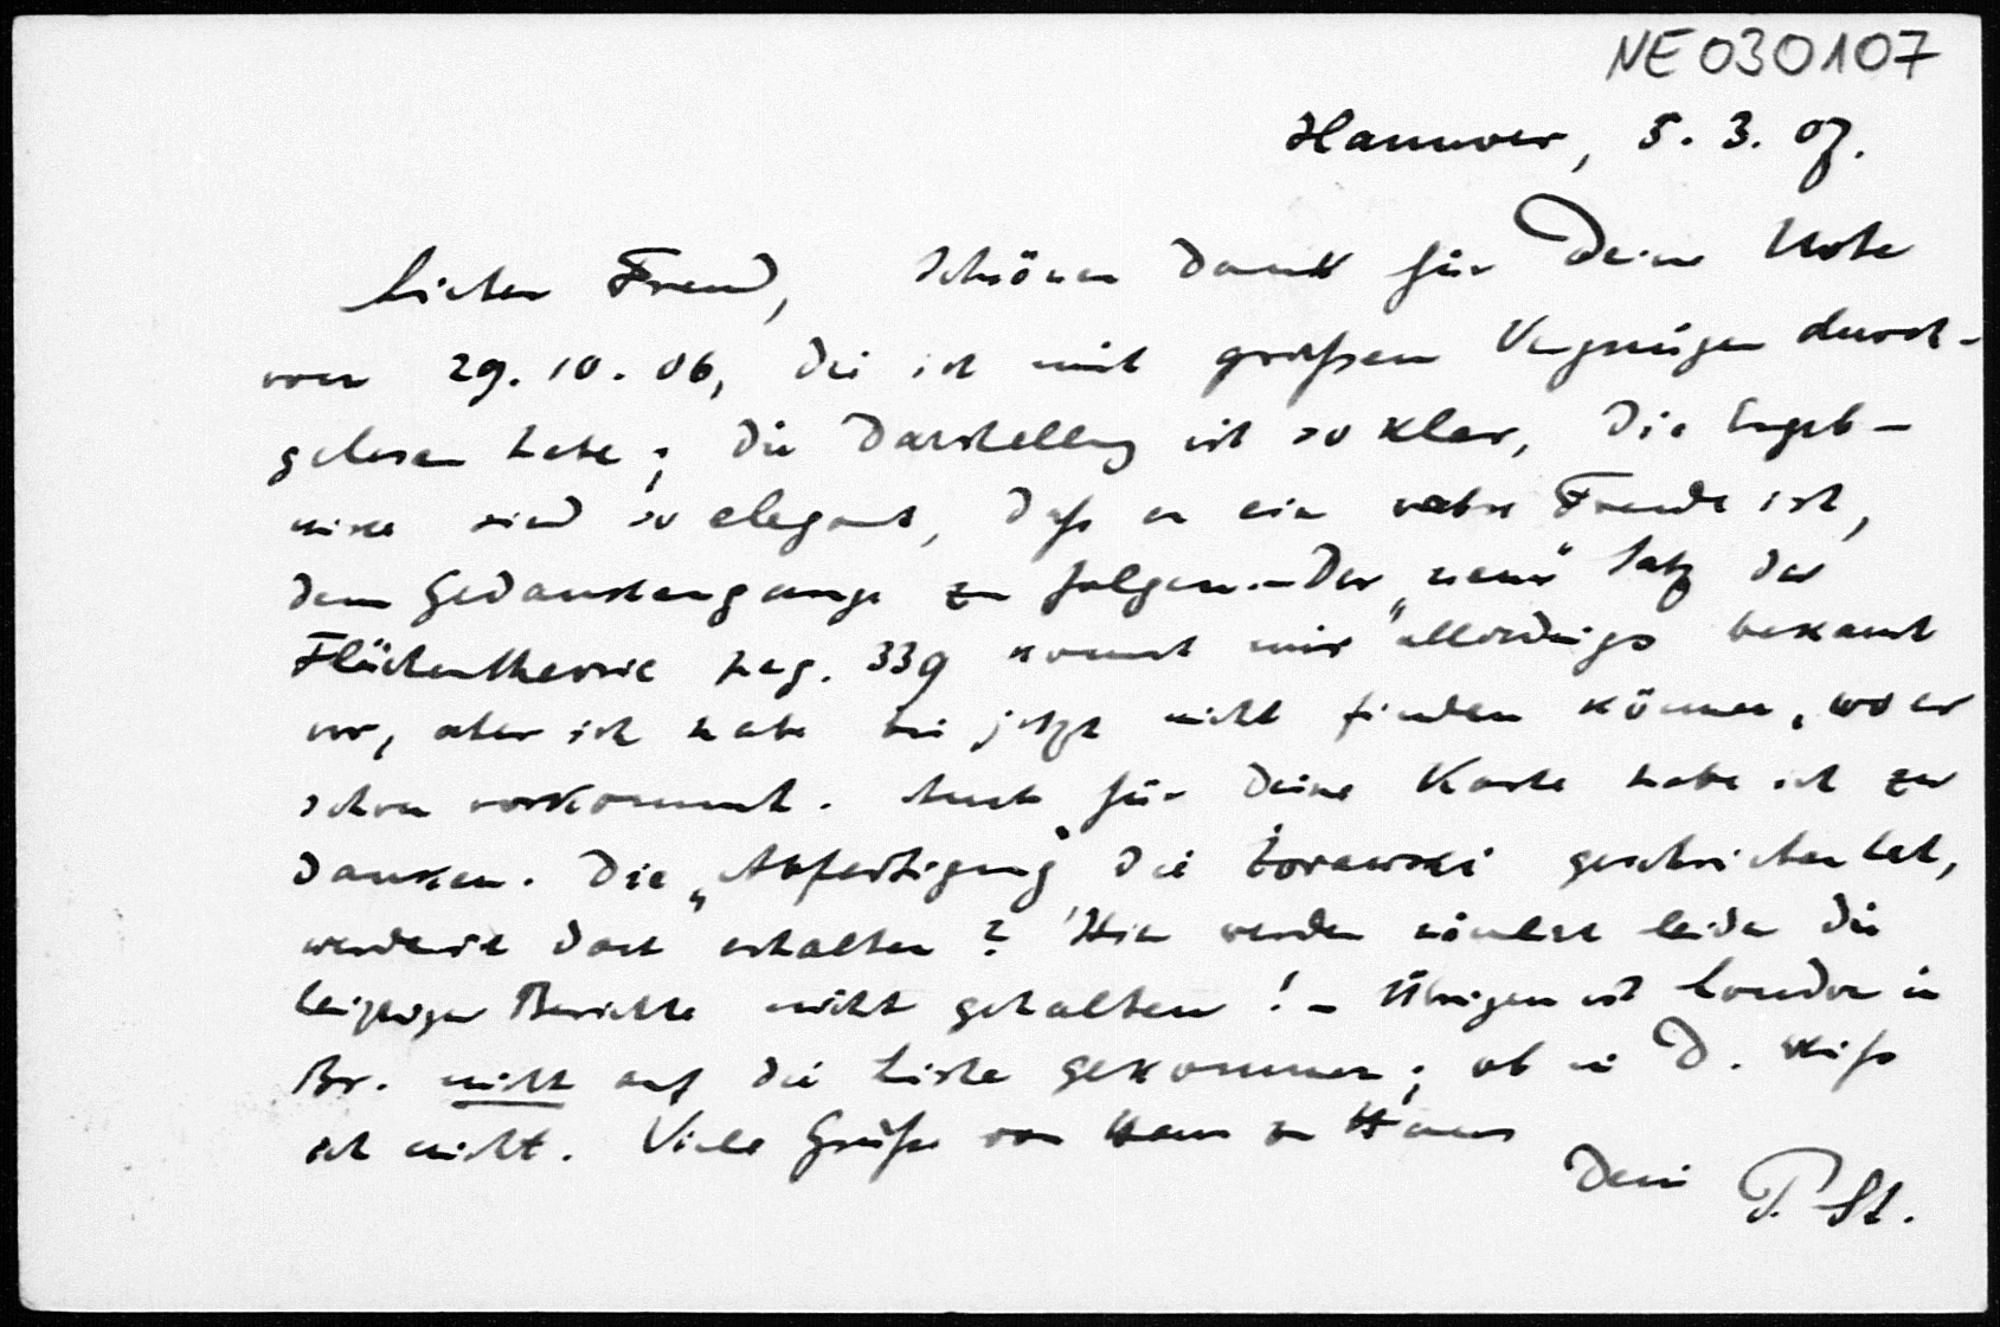 NE030107
Hannover, 5. 3. 07.
Lieber Freund, Schönen Dank für Deine Note
vom 29. 10. 06, die ich mit großem Vergnügen durch-
gelesen habe; die Darstellung ist so klar, die Ergeb-
nisse sind so elegant, daß es eine wahre Freude ist,
dem Gedankengange zu folgen. – Der „neue" Satz der
Flächentheorie pag. 339 kommt mir allerdings bekannt
vor, aber ich habe bis jetzt nicht finden können, wo er
schon vorkommt. Auch für Deine Karte habe ich zu
danken. Die „Abfertigung", die Żorawski geschrieben hat,
werde ich doch erhalten? Hier werden nämlich leider die
Leipziger Berichte nicht gehalten! – Übrigens ist London in
Br. nicht auf die Liste gekommen; ob in D. weiß
ich nicht. Viele Grüße von Haus zu Haus
Dein P. St.